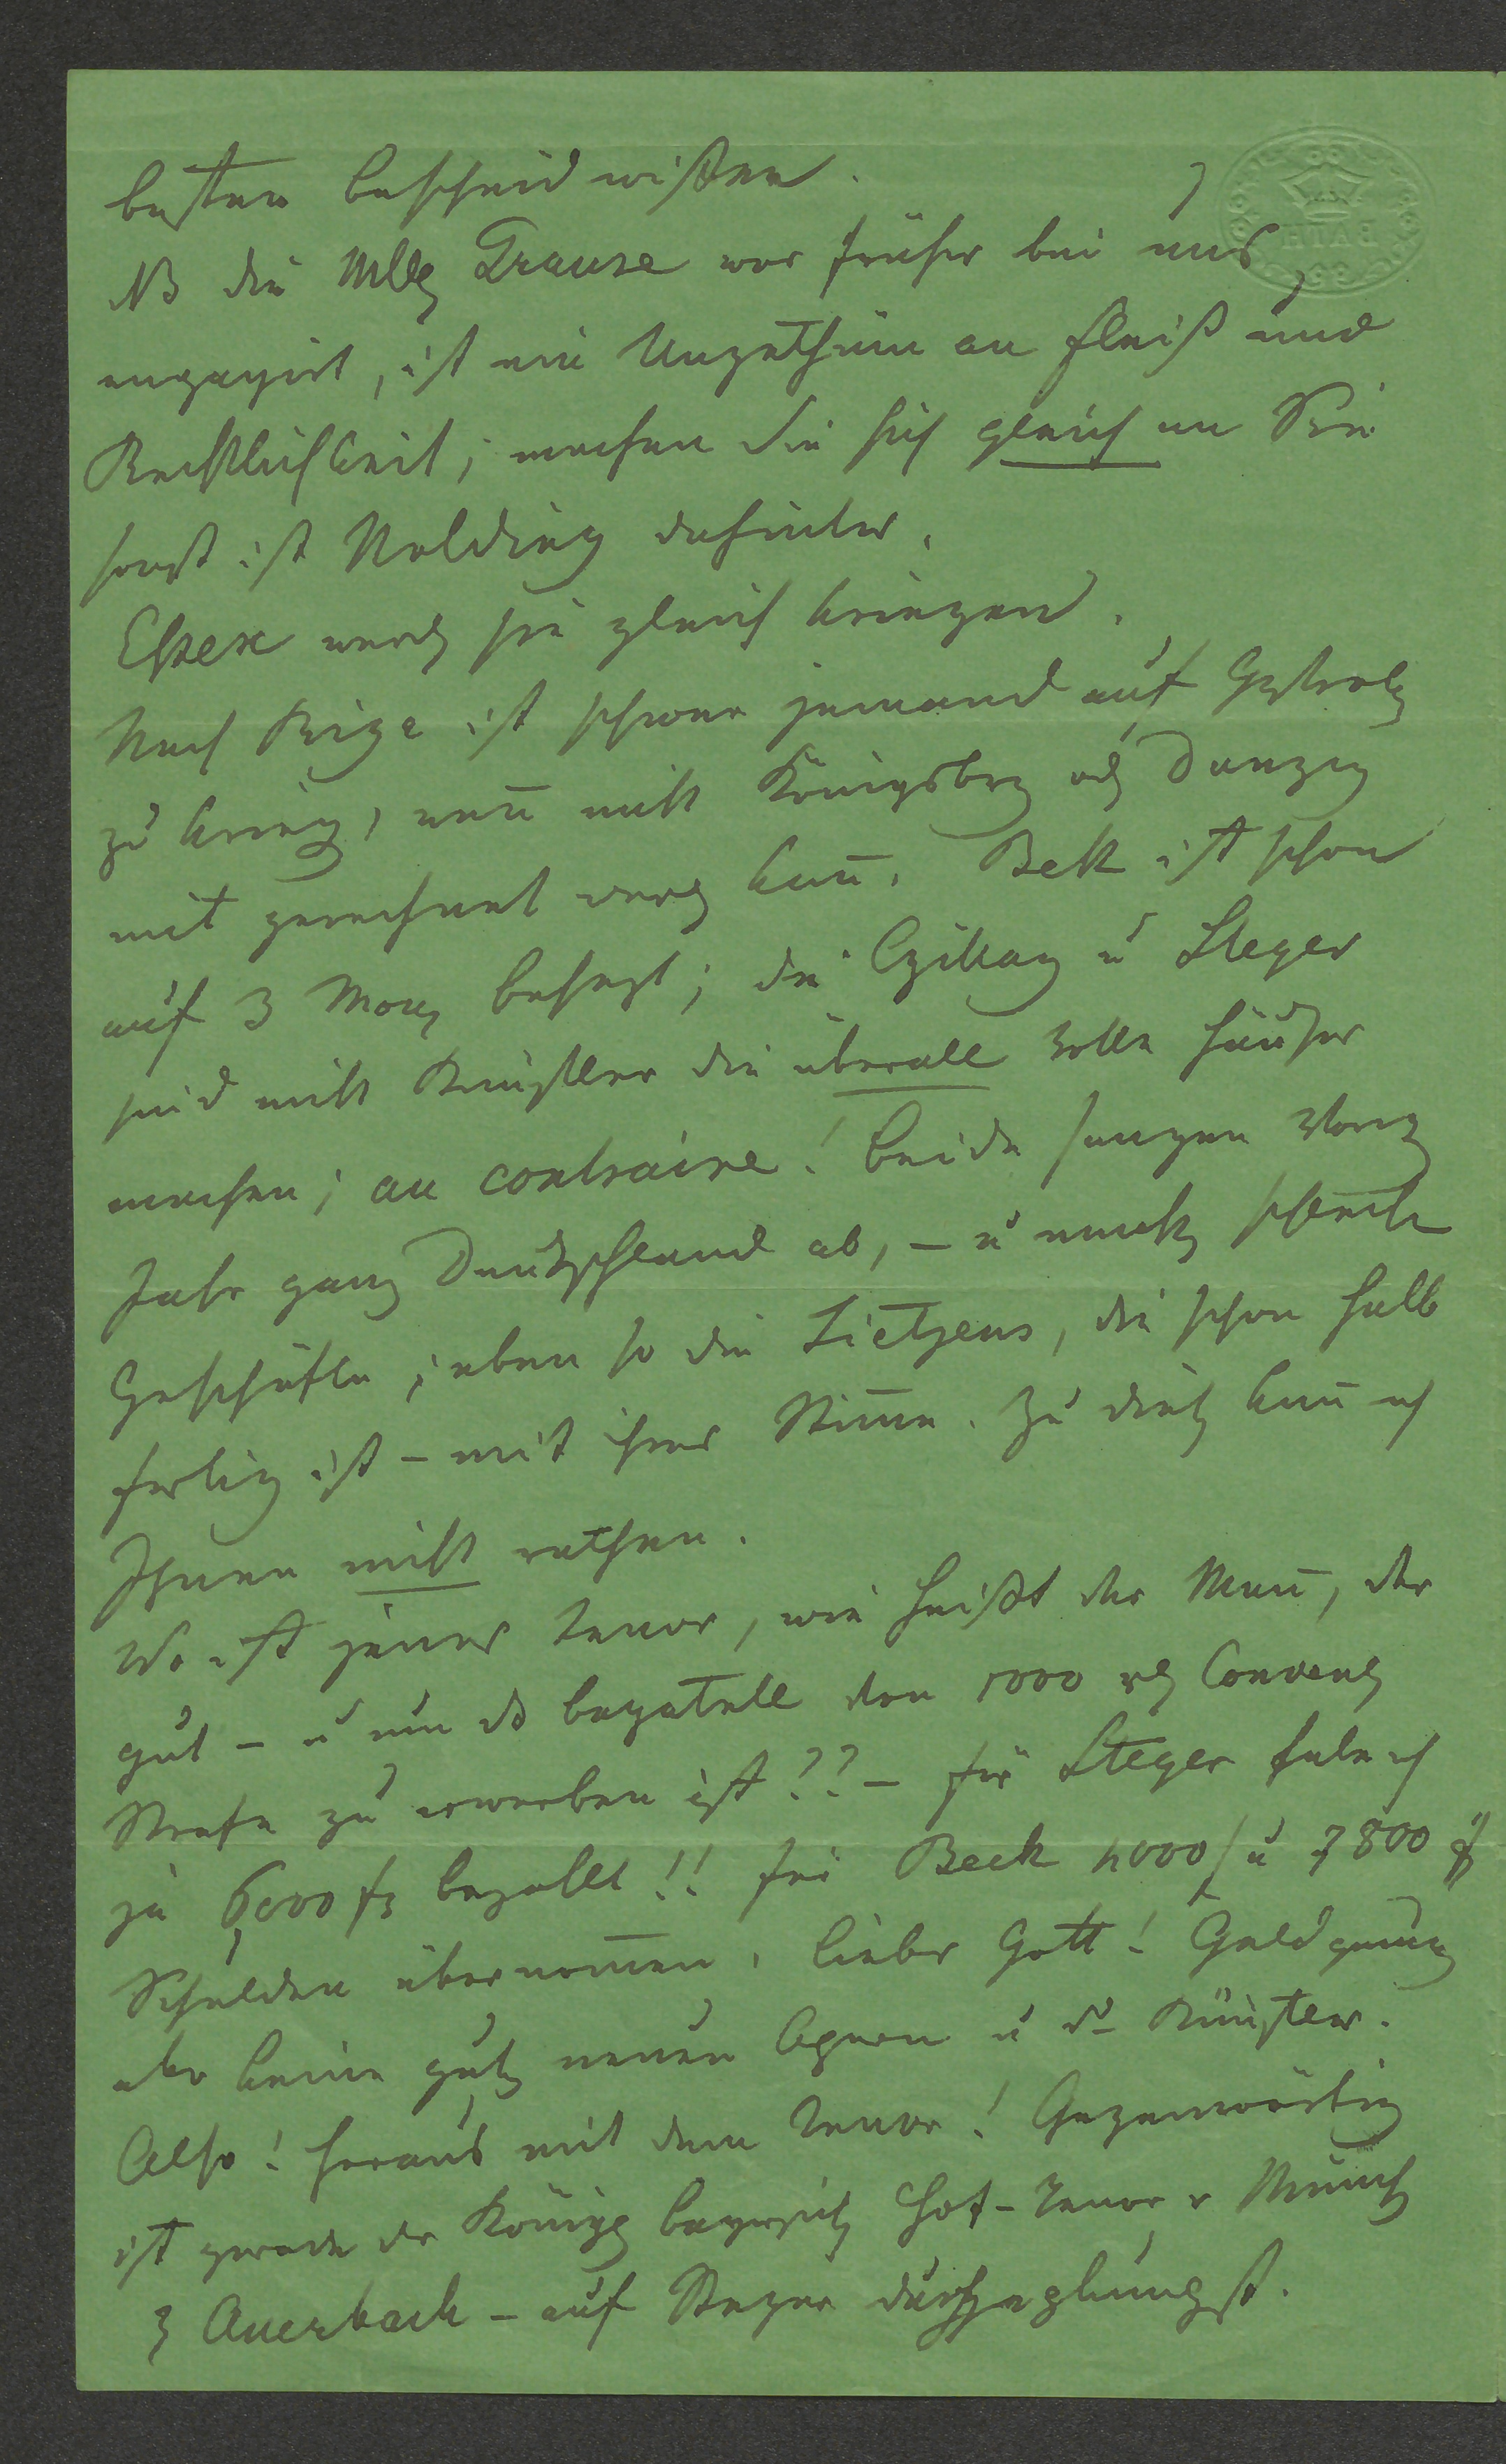 besten Bescheid wißen.
NB die Mlle Grause war früher bei uns
engagirt, ist ein Ungethüm an Fleiß und
Rechtlichkeit; machen Sie sich gleich an Sie
sonst ist Nolding dahinter.
werd sie gleich kriegen.
Nach Riga ist schwer jemand auf Gastrolg
zu krieg, wen̄ nicht Königsbrg od Danzig
mit gerechnet werd kan̄. Beck ist schon
auf 3 Mon besezt; die Czillag u Steger
sind nicht Künstler die überall volle Häußer
machen; au contraire! beide sangen vorig
Jahr ganz Deutschland ab, – u macht schlechte
Geschäfte; eben so die Tietjens, die schon halb
fertig ist – mit ihrer Stim̄e. Zu dies kan̄ ich
Ihnen nicht rathen.
Wo ist jener Tenor, wie heißt der Man̄, der
gut – u um d bagatelle von 1000 Convent
Strafe zu erwerben ist??– für Steger habe ich
ja 6000 fr bezahlt!! für Beck 4000 / u 7800 f
Schulden übernom̄en. lieber Gott! Geld genug
aber keine gut neuen Opern u Künstler.
Also! heraus mit dem Tenor! Gegenwärtig
ist gerade der Königl bayrisch Hof-Tenor v Münch
H Auerbach – auf Steger durchgeplumpst.
BATH